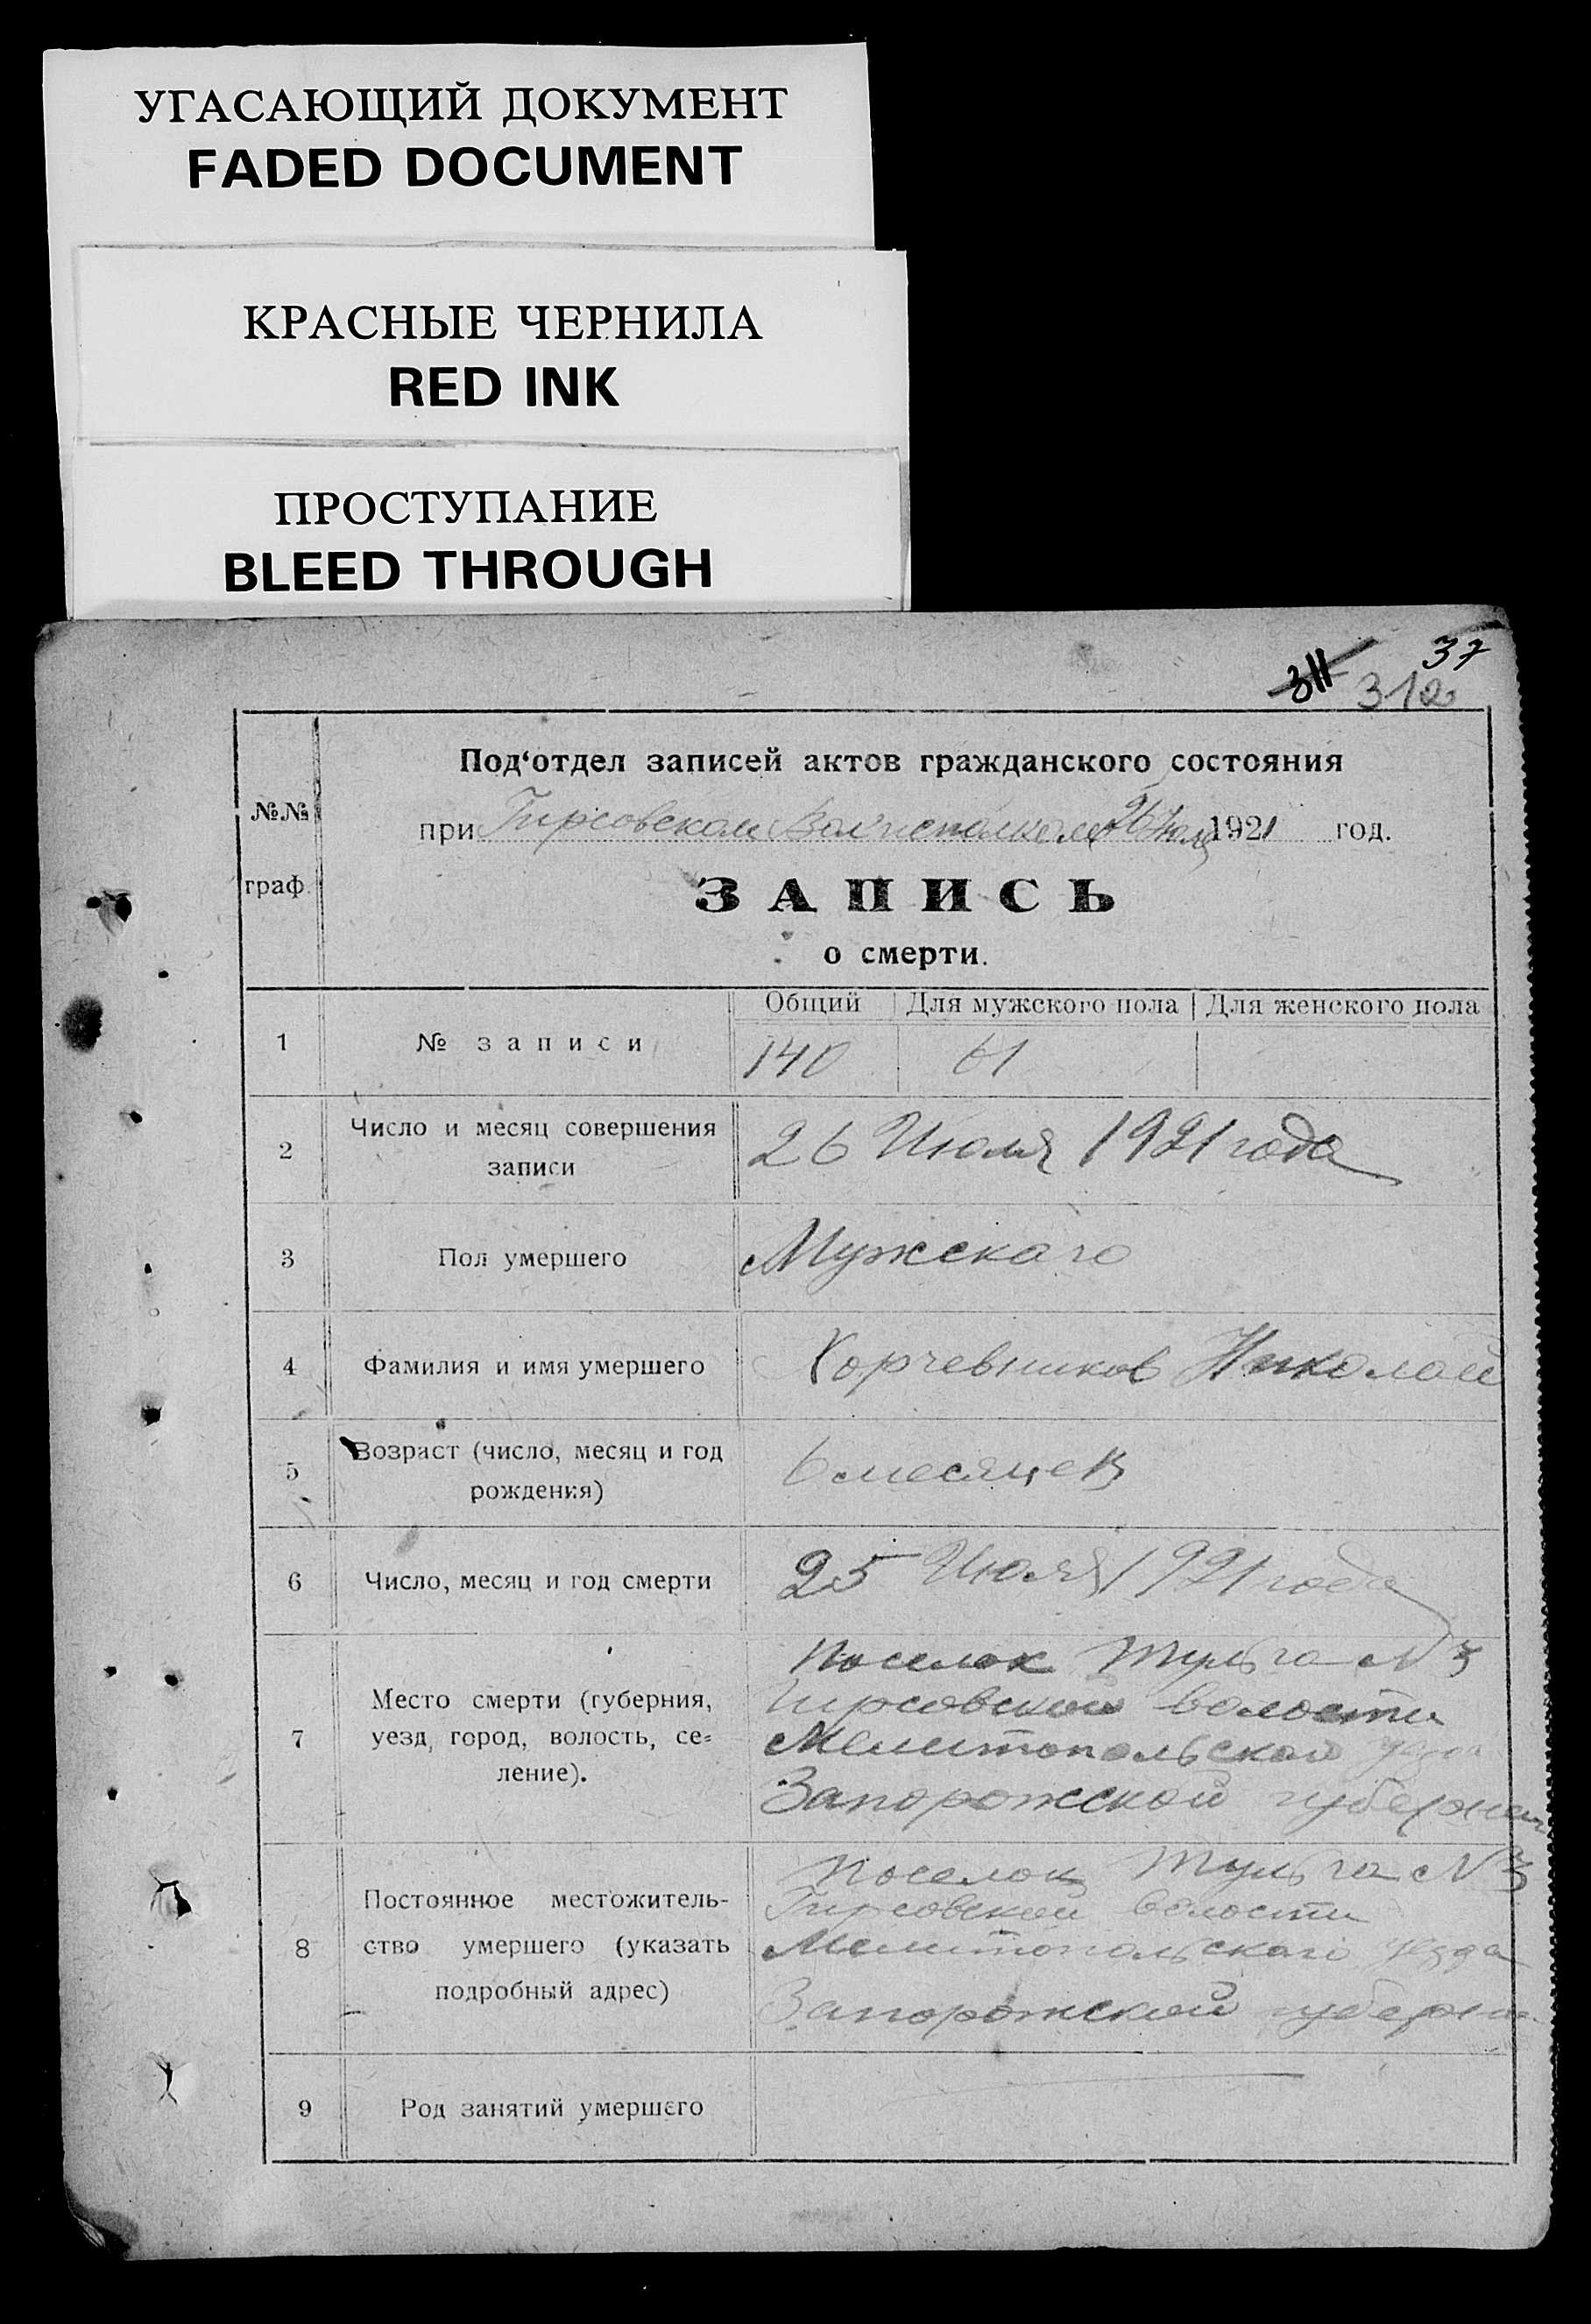 УГАСАЮЩИЙ ДОКУМЕНТ
FADED DOCUMENT
КРАСНЫЕ ЧЕРНИЛА
RED INK
ПРОСТУПАНИЕ
BLEED THROUGH
37
311 312
Под‘отдел записей актов гражданского состояния
№№ граф.
при Гирсовском Волисполкоме 26 Июля 1921 год.
ЗАПИСЬ
о смерти.
Общий Для мужского пола Для женского пола
1 № записи 140 61
2 Число и месяц совершения
записи
26 Июля 1921 года
3 Пол умершего Мужскаго
4 Фамилия и имя умершего Хорчевников Николай
5 Возраст (число, месяц и год
рождения)
6 месяцев
6 Число, месяц и год смерти 25 Июля 1921 года
7 Место смерти (губерния,
уезд, город, волость, се=
ление).
Поселок Тульга № 3
Гирсовской волости
Мелитопольской уезда
Запорожской губернии
8 Постоянное местожитель-
ство умершего (указать
подробный адрес)
Поселок Тульга № 3
Гирсовской волости
Мелитопольскаго уезда
Запорожской губернии
9 Род занятий умершего